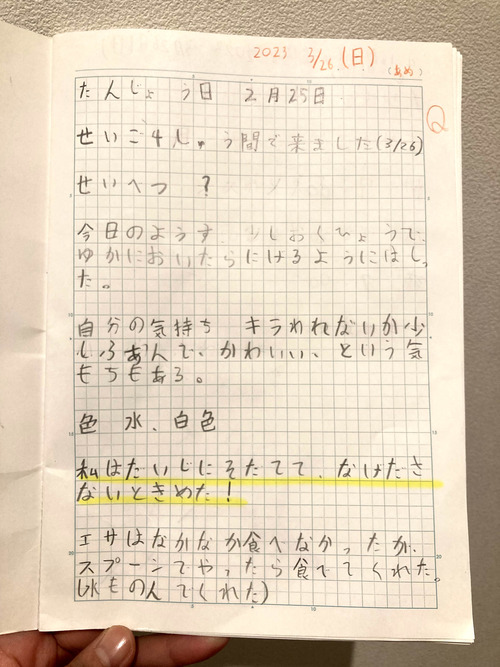 2023 3/26.(日)
(あめ)
たんじょう日 2月25日
せいご4しゅう間で来ました(3/26)
せいべつ ?
今日のようす 少しおくびょうで、
ゆかにおいたらにけるようにはしっ
た。
自分の気持ち キラわれないか少
しふあんで、かわいい、という気
もちもある。
色 水、白色
私はたいじにそたてて、なけたさ
ないときめた!
エサはなかなか食べなかったが、
スプーンでやったら食べてくれた。
(水ものんでくれた)